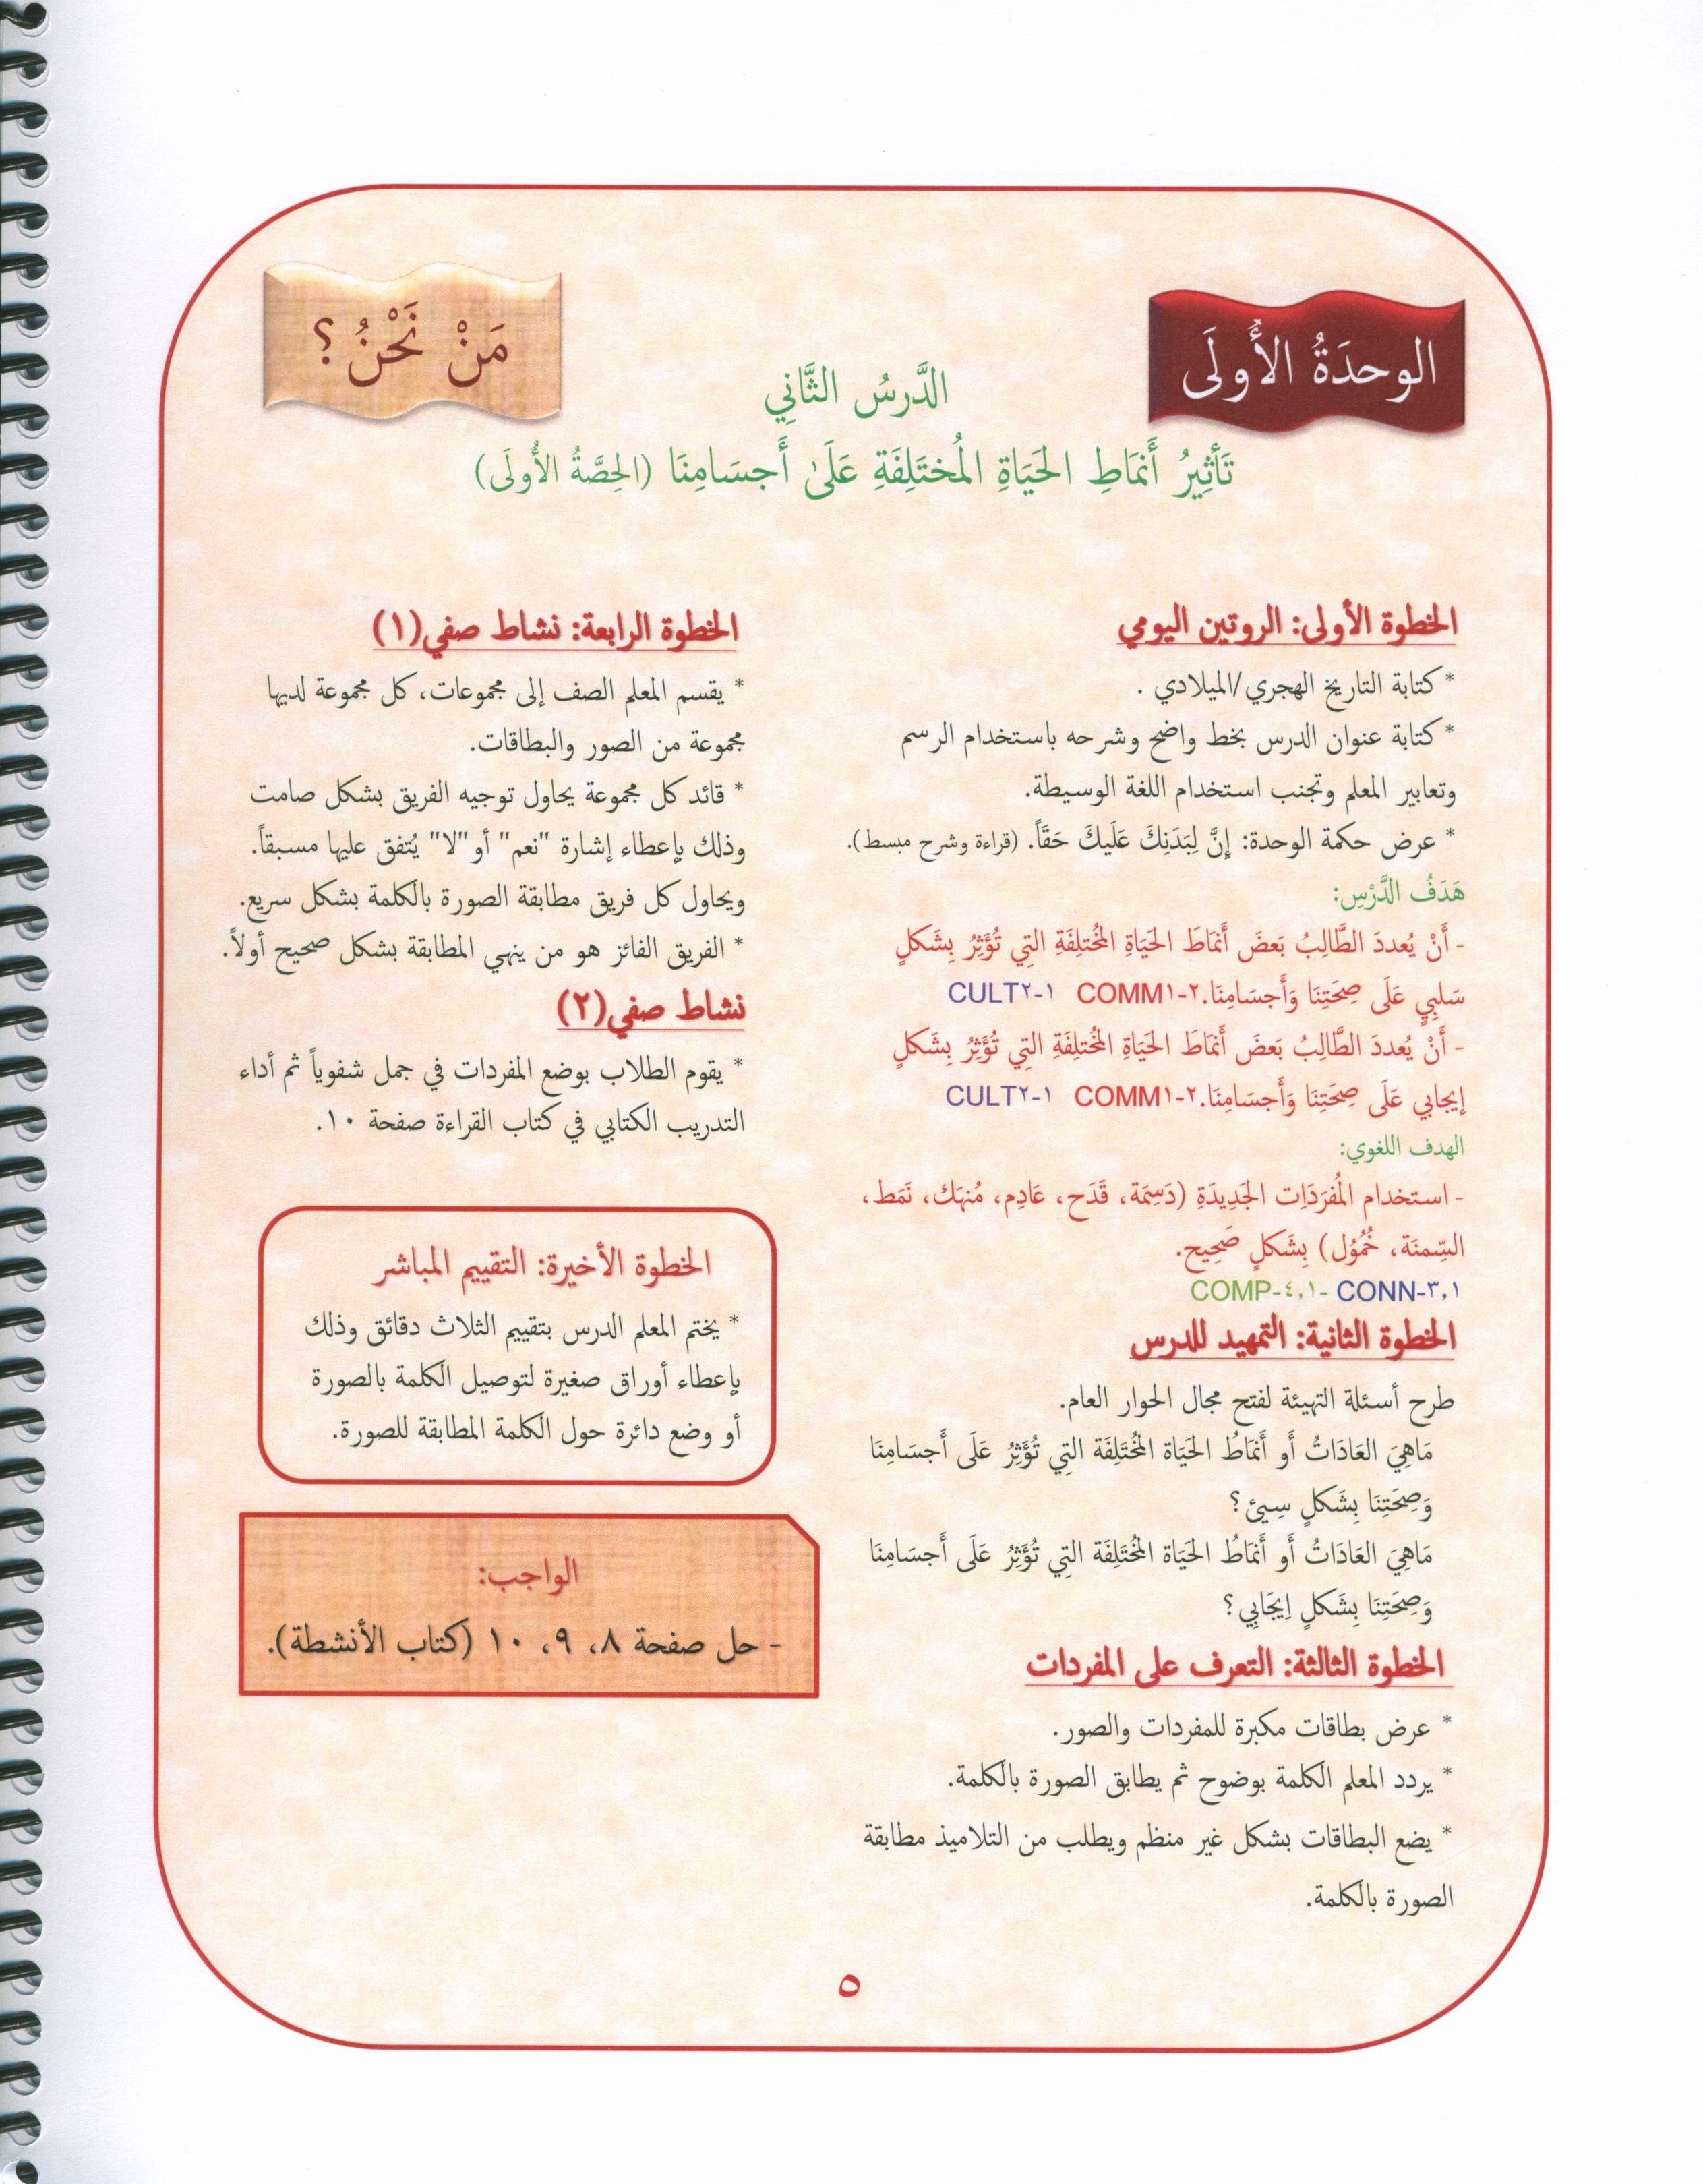 الوحدَةُ الأُولَى
مَنْ نَحْنُ؟
الدَّرسُ الثَّانِي
تَأثِيرُ أَنمَاطِ الحَيَاةِ المُختَلِفَةِ عَلَىٰ أَجسَامِنَا (الحِصَّةُ الأُولَى)
الخطوة الأولى: الروتين اليومي
* كتابة التاريخ الهجري/الميلادي .
* كتابة عنوان الدرس بخط واضح وشرحه باستخدام الرسم
وتعابير المعلم وتجنب استخدام اللغة الوسيطة.
* عرض حكمة الوحدة: إِنَّ لِبَدَنِكَ عَلَيكَ حَقَّاً. (قراءة وشرح مبسط).
هَدَفُ الدَّرْسِ:
- أَنْ يُعددَ الطَّالِبُ بَعضَ أَنمَاطَ الحَيَاةِ المُختلِفَةِ التِي تُؤَثِرُ بِشَكلٍ
سَلبِيٍ عَلَى صِحَتِنَا وَأَجسَامِنَا.COMM١-٢ CULT٢-١
- أَنْ يُعددَ الطَّالِبُ بَعضَ أَنمَاطَ الحَيَاةِ المُختلِفَةِ التِي تُؤَثِرُ بِشَكلٍ
إيجابي عَلَى صِحَتِنَا وَأَجسَامِنَا.COMM١-٢ CULT٢-١
الهدف اللغوي:
- استخدام المُفرَدَاِت الجَدِيدَةِ (دَسِمَة، قَدَح، عَادِم، مُنهَك، نَمَط،
السِّمنَة، خُمُوُل) بِشَكلٍ صَحِيح.
COMP-٤,١- CONN-٣,١
الخطوة الثانية: التمهيد للدرس
طرح أسئلة التهيئة لفتح مجال الحوار العام.
مَاهِيَ العَادَاتُ أَو أَنمَاطُ الحَيَاة المُختَلِفَة التِي تُؤَثِرُ عَلَى أَجسَامِنَا
وَصِحَتِنَا بِشَكلٍ سِيئ؟
مَاهِيَ العَادَاتُ أَو أَنمَاطُ الحَيَاة المُختَلِفَة التِي تُؤَثِرُ عَلَى أَجسَامِنَا
وَصِحَتِنَا بِشَكلٍ اِيجَابِي؟
الخطوة الثالثة: التعرف على المفردات
* عرض بطاقات مكبرة للمفردات والصور.
* يردد المعلم الكلمة بوضوح ثم يطابق الصورة بالكلمة.
* يضع البطاقات بشكل غير منظم ويطلب من التلاميذ مطابقة
الصورة بالكلمة.
الخطوة الرابعة: نشاط صفي(١)
* يقسم المعلم الصف إلى مجموعات، كل مجموعة لديها
مجموعة من الصور والبطاقات.
* قائد كل مجموعة يحاول توجيه الفريق بشكل صامت
وذلك بإعطاء إشارة "نعم" أو "لا" يُتفق عليها مسبقاً.
ويحاول كل فريق مطابقة الصورة بالكلمة بشكل سريع.
* الفريق الفائز هو من ينهي المطابقة بشكل صحيح أولاً.
نشاط صفي(٢)
* يقوم الطلاب بوضع المفردات في جمل شفوياً ثم أداء
التدريب الكتابي في كتاب القراءة صفحة ١٠.
الخطوة الأخيرة: التقييم المباشر
* يختم المعلم الدرس بتقييم الثلاث دقائق وذلك
بإعطاء أوراق صغيرة لتوصيل الكلمة بالصورة
أو وضع دائرة حول الكلمة المطابقة للصورة.
الواجب:
- حل صفحة ٨، ٩، ١٠ (كتاب الأنشطة).
٥